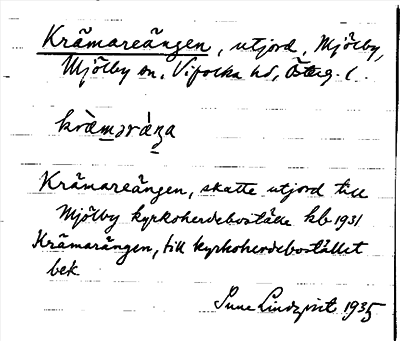 Krämareängen, utjord, Mjölby,
Mjölby sn, Vifolka hd, Österg. l.
kræ̀məræ̀ŋa
Krämareängen, skatte utjord till
Mjölby kyrkoherdeboställe kb 1931
Krämarängen, till kyrkoherdebostället
bek
Sune Lindqvist 1935